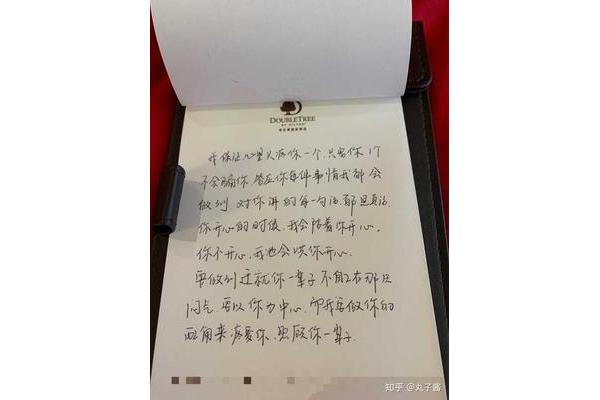 DOUBLETREE
BY HILTON
我保证心里只疼你一个,只宠你1个
不会骗你.答应你每件事情我都会
做到.对你讲的每一句话都是真话.
你开心的时候.我会陪着你开心.
你不开心.我也会哄你开心.
要做到迁就你一辈子不能有
问.要以你为中心.即我要做你的
配角来疼爱你.照顾你一辈子.
知乎 @丸子酱